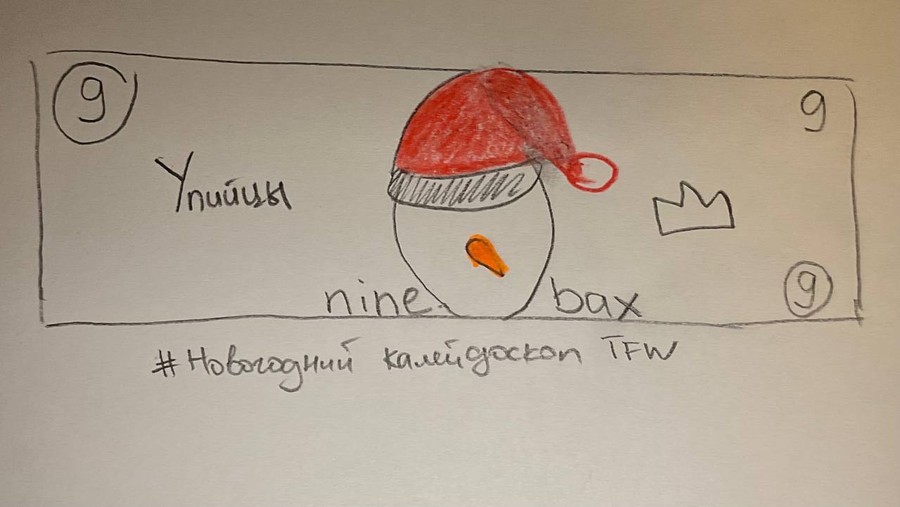 9
9
Упийцы
nine bax
9
#Новогодний калейдоскоп TFW